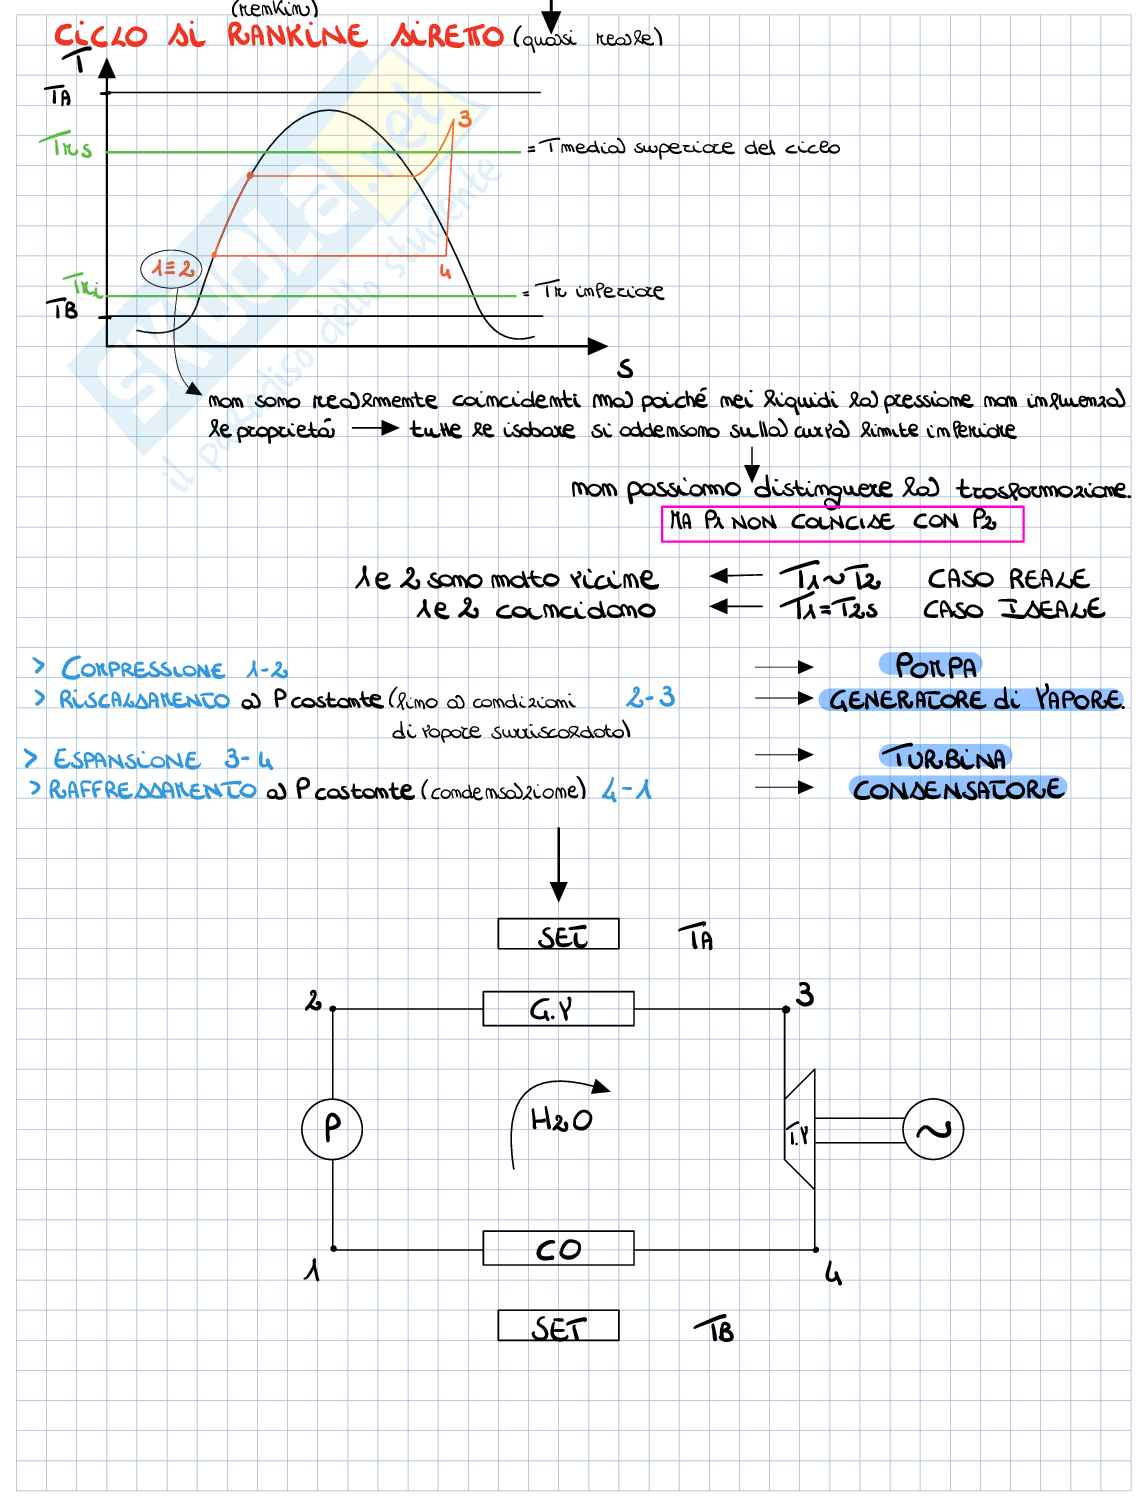 (renkin)
CICLO DI RANKINE DIRETTO (quasi reale)
T
TA
3
Trs = T media superiore del ciclo
1≡2
4
Tri = Tr inferiore
TB
S
non sono realmente coincidenti ma poiché nei liquidi la pressione non influenza
le proprietá → tutte le isobare si addensano sulla curva limite inferiore
non possiamo distinguere la trasformazione.
MA P1 NON COINCIDE CON P2
1 e 2 sono molto vicine ← T1~T2 CASO REALE
1 e 2 coincidono ← T1=T2s CASO IDEALE
> COMPRESSIONE 1-2 → POMPA
> RISCALDAMENTO a P costante (fino a condizioni 2-3 → GENERATORE di VAPORE.
di vapore surriscaldato)
> ESPANSIONE 3-4 → TURBINA
> RAFFREDDAMENTO a P costante (condensazione) 4-1 → CONDENSATORE
SET TA
2 G.V 3
P H2O T.V ~
1 CO 4
SET TB
skuola.net
il paradiso dello studente